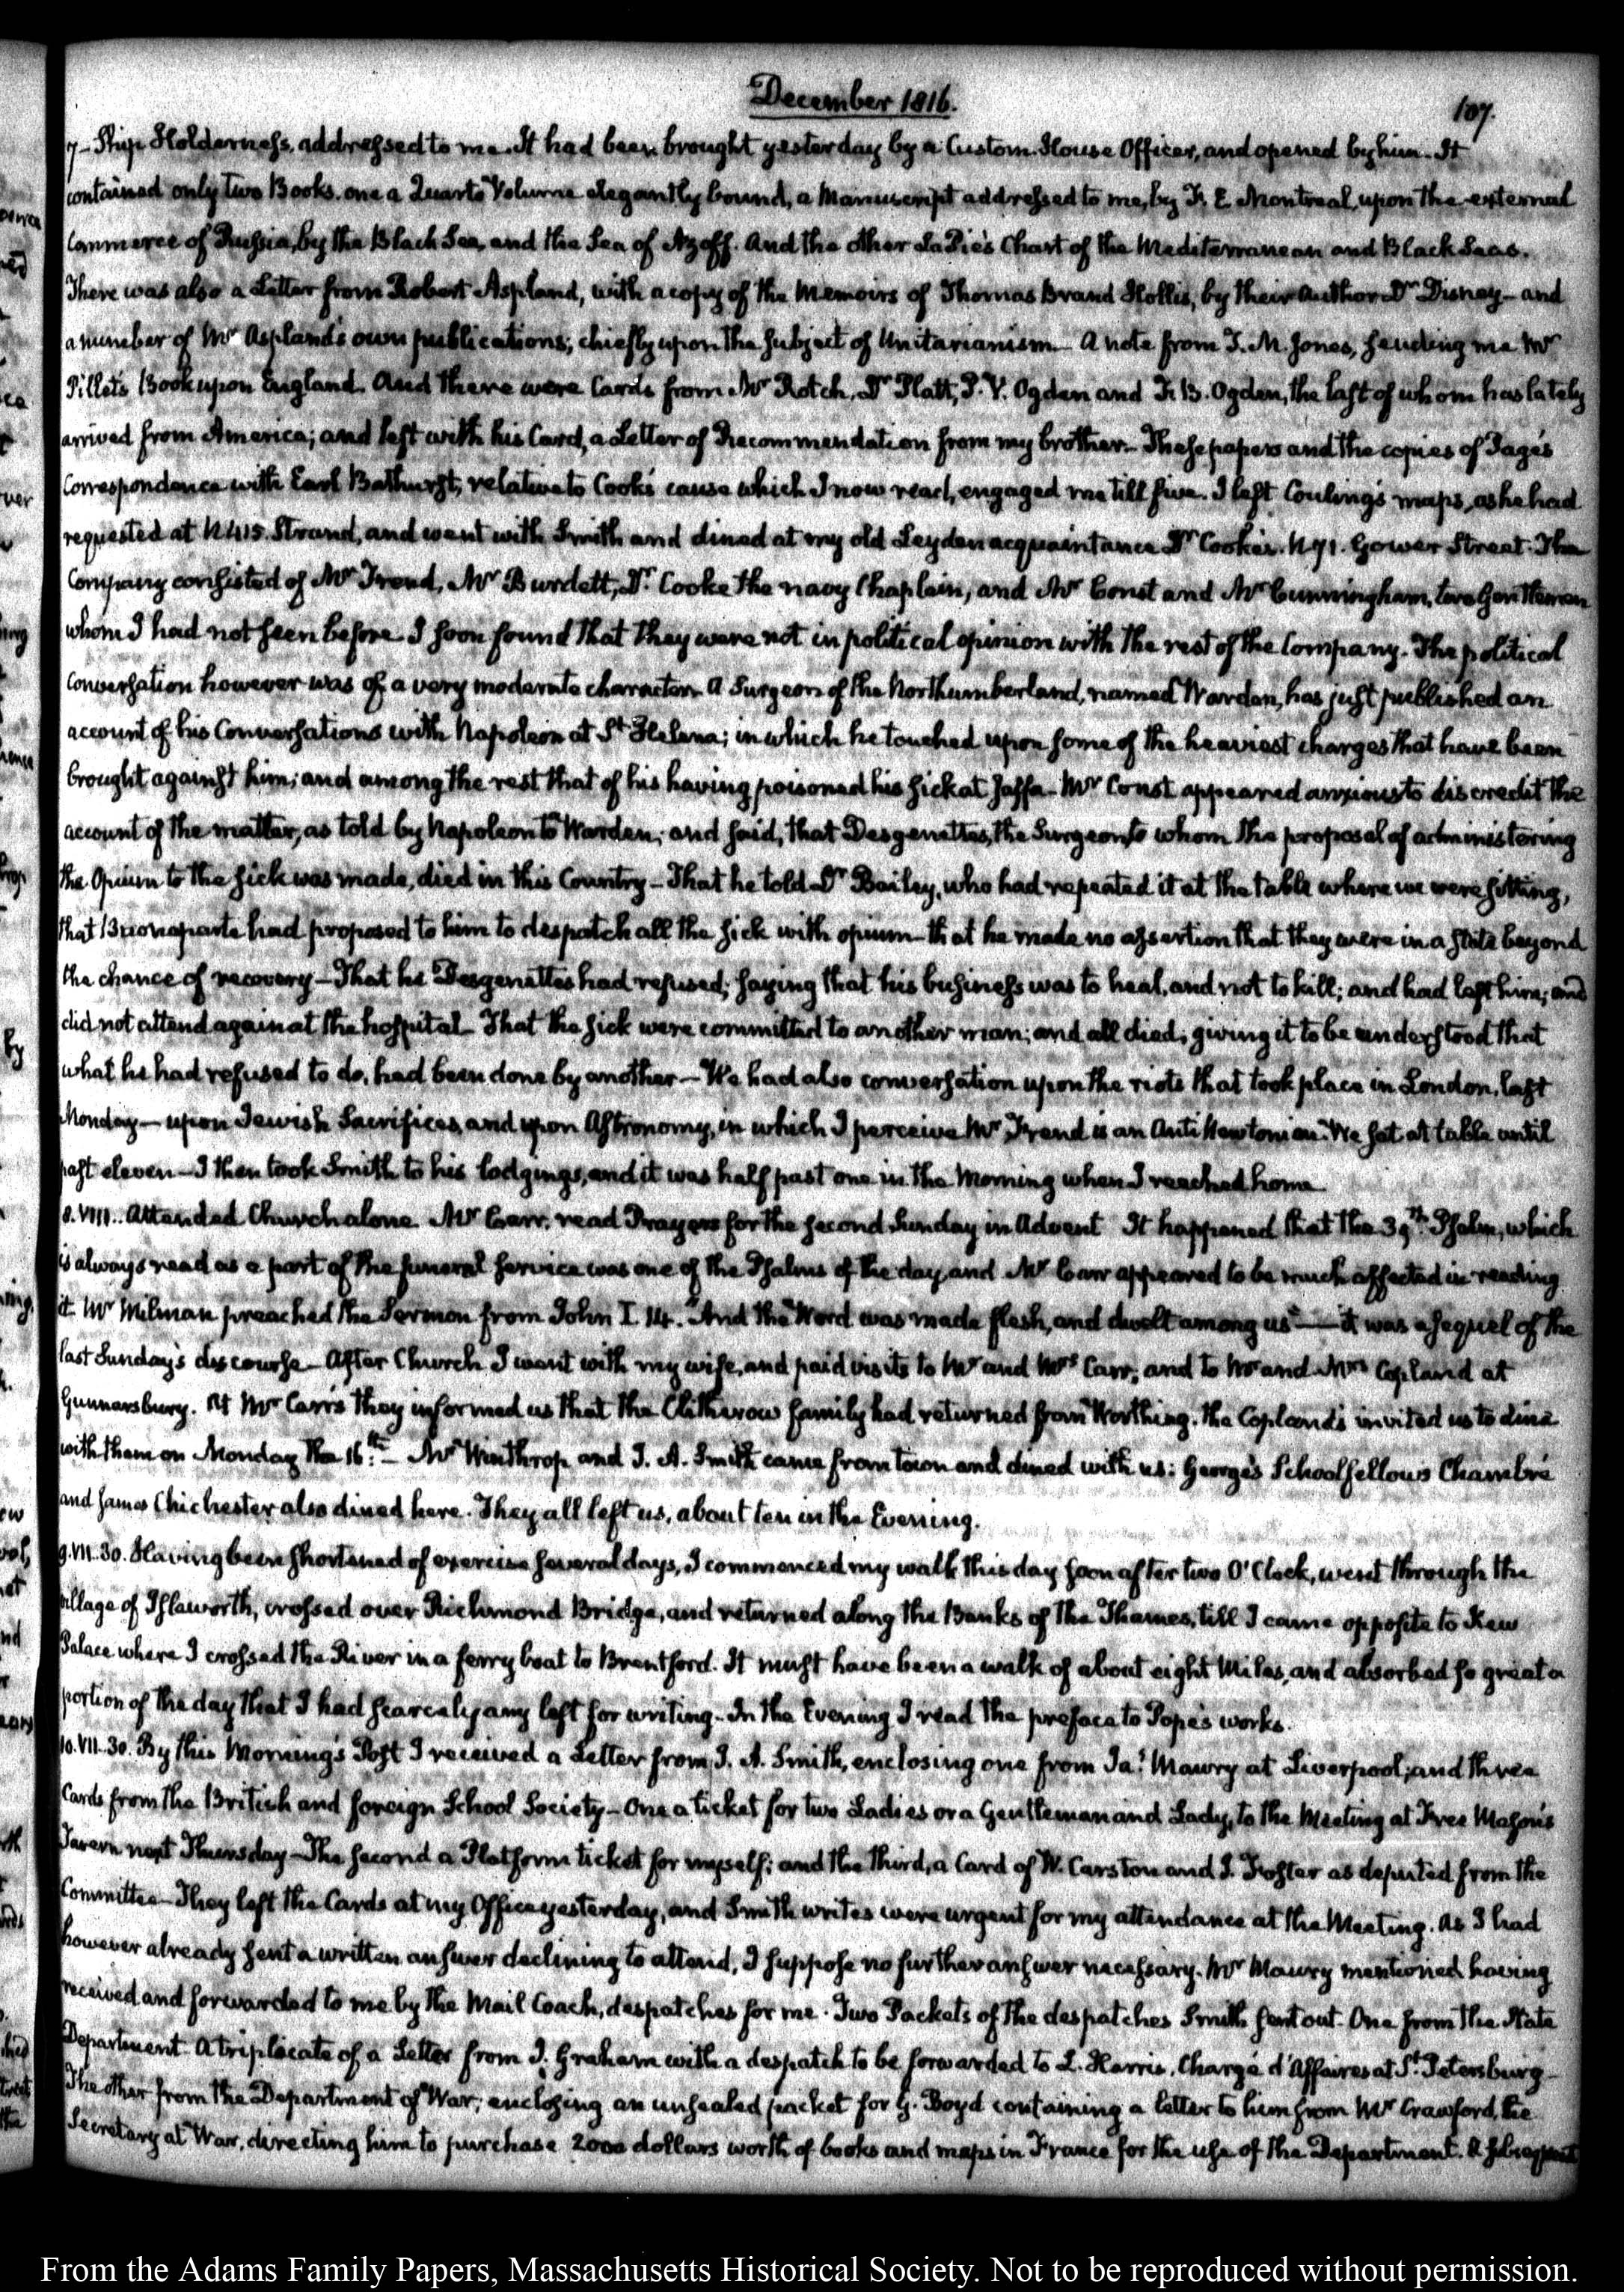 December 1816.
107.
7 – Ship Holderness, addressed to me. It had been brought yesterday by a Custom House Officer, and opened by him. It
contained only two Books. one a Quarto Volume elegantly bound, a Manuscript addressed to me, by F. E. Montreal, upon the external
Commerce of Russia, by the Black Sea, and the Sea of Azoff. And the other LaPie's Chart of the Mediterranean and Black Seas.
There was also a Letter from Robert Aspland, with a copy of the Memoirs of Thomas Brand Hollis, by their Author Dr Disney – and
a number of Mr Aspland's own publications; chiefly upon the subject of Unitarianism – A note from J. M. Jones, sending me Mr
Pillet's Book upon England. And there were Cards from Mr Rotch, Dr Platt, P. V. Ogden and F. B. Ogden, the last of whom has lately
arrived from America; and left with his Card, a Letter of Recommendation from my brother – These papers and the copies of Page's
Correspondence with Earl Bathurst, relative to Cook's cause which I now read, engaged me till five. I left Couling's maps, as he had
requested at N 415. Strand, and went with Smith and dined at my old Leyden acquaintance Dr Cooke's. N 71. Gower Street. The
Company consisted of Mr Frend, Mr Burdett, Dr. Cooke the navy Chaplain, and Mr Const and Mr Cunningham, two Gentlemen
whom I had not seen before. I soon found that they were not in political opinion with the rest of the Company. The political
Conversation however was of a very moderate character. A Surgeon of the Northumberland, named Warden, has just published an
account of his Conversations with Napoleon at St Helena; in which he touched upon some of the heaviest charges that have been
brought against him; and among the rest that of his having poisoned his sick at Jaffa – Mr Const appeared anxious to discredit the
account of the matter, as told by Napoleon to Warden; and said, that Desgenettes, the Surgeon to whom the proposal of administering
the Opium to the sick was made, died in this Country – That he told Dr Bailey, who had repeated it at the table where we were sitting,
that Buonaparte had proposed to him to despatch all the sick with opium – that he made no assertion that they were in a state beyond
the chance of recovery – That he Desgenettes had refused; saying that his business was to heal, and not to kill; and had left him; and
did not attend again at the hospital – That the sick were committed to another man; and all died, giving it to be understood that
what he had refused to do, had been done by another – We had also conversation upon the riots that took place in London, last
Monday – upon Jewish Sacrifices, and upon Astronomy, in which I perceive Mr Frend is an Anti Newtonian. We sat at table until
past eleven – I then took Smith to his lodgings, and it was half past one in the Morning when I reached home
8. VIII.. Attended Church alone. Mr Carr, read Prayers for the second Sunday in Advent It happened that the 39th. Psalm, which
is always read as a part of the funeral service was one of the Psalms of the day, and Mr Carr appeared to be much affected in reading
it. Mr Milman preached the Sermon from John I. 14. "And the Word was made flesh, and dwelt among us" — it was a sequel of the
last Sunday's discourse – After Church I went with my wife, and paid visits to Mr and Mrs Carr; and to Mr and Mrs Copland at
Gunnersbury. At Mr Carr's they informed us that the Clitherow family had returned from Worthing. The Copland's invited us to dine
with them on Monday the 16th. – Mr Winthrop and J. A. Smith came from town and dined with us: George's Schoolfellows Chambré
and James Chichester also dined here. They all left us, about ten in the Evening.
9. VII. 30. Having been shortened of exercise several days, I commenced my walk this day soon after two O'Clock, went through the
village of Isleworth, crossed over Richmond Bridge, and returned along the Banks of the Thames, till I came opposite to Kew
Palace where I crossed the River in a ferry boat to Brentford. It must have been a walk of about eight Miles, and absorbed so great a
portion of the day that I had scarcely any left for writing – In the Evening I read the preface to Pope's works.
10. VII. 30. By this Morning's Post I received a Letter from J. A. Smith, enclosing one from Jas. Maury at Liverpool; and three
Cards from the British and foreign School Society – One a ticket for two Ladies or a Gentleman and Lady, to the Meeting at Free Mason's
Tavern next Thursday – The second a Platform ticket for myself; and the third, a Card of W. Carston and J. Foster as deputed from the
Committee – They left the Cards at my Office yesterday, and Smith writes were urgent for my attendance at the Meeting. As I had
however already sent a written answer declining to attend, I suppose no further answer necessary. Mr Maury mentioned having
received and forwarded to me by the Mail Coach, despatches for me. Two Packets of the despatches Smith sent out. One from the State
Department. A triplicate of a Letter from J. Graham with a despatch to be forwarded to L. Harris, Chargé d'Affaires at St. Petersburg –
The other from the Department of War; enclosing an unsealed packet for G. Boyd containing a letter to him from Mr Crawford, the
Secretary at War, directing him to purchase 2000 dollars worth of books and maps in France for the use of the Department. A subsequent
From the Adams Family Papers, Massachusetts Historical Society. Not to be reproduced without permission.